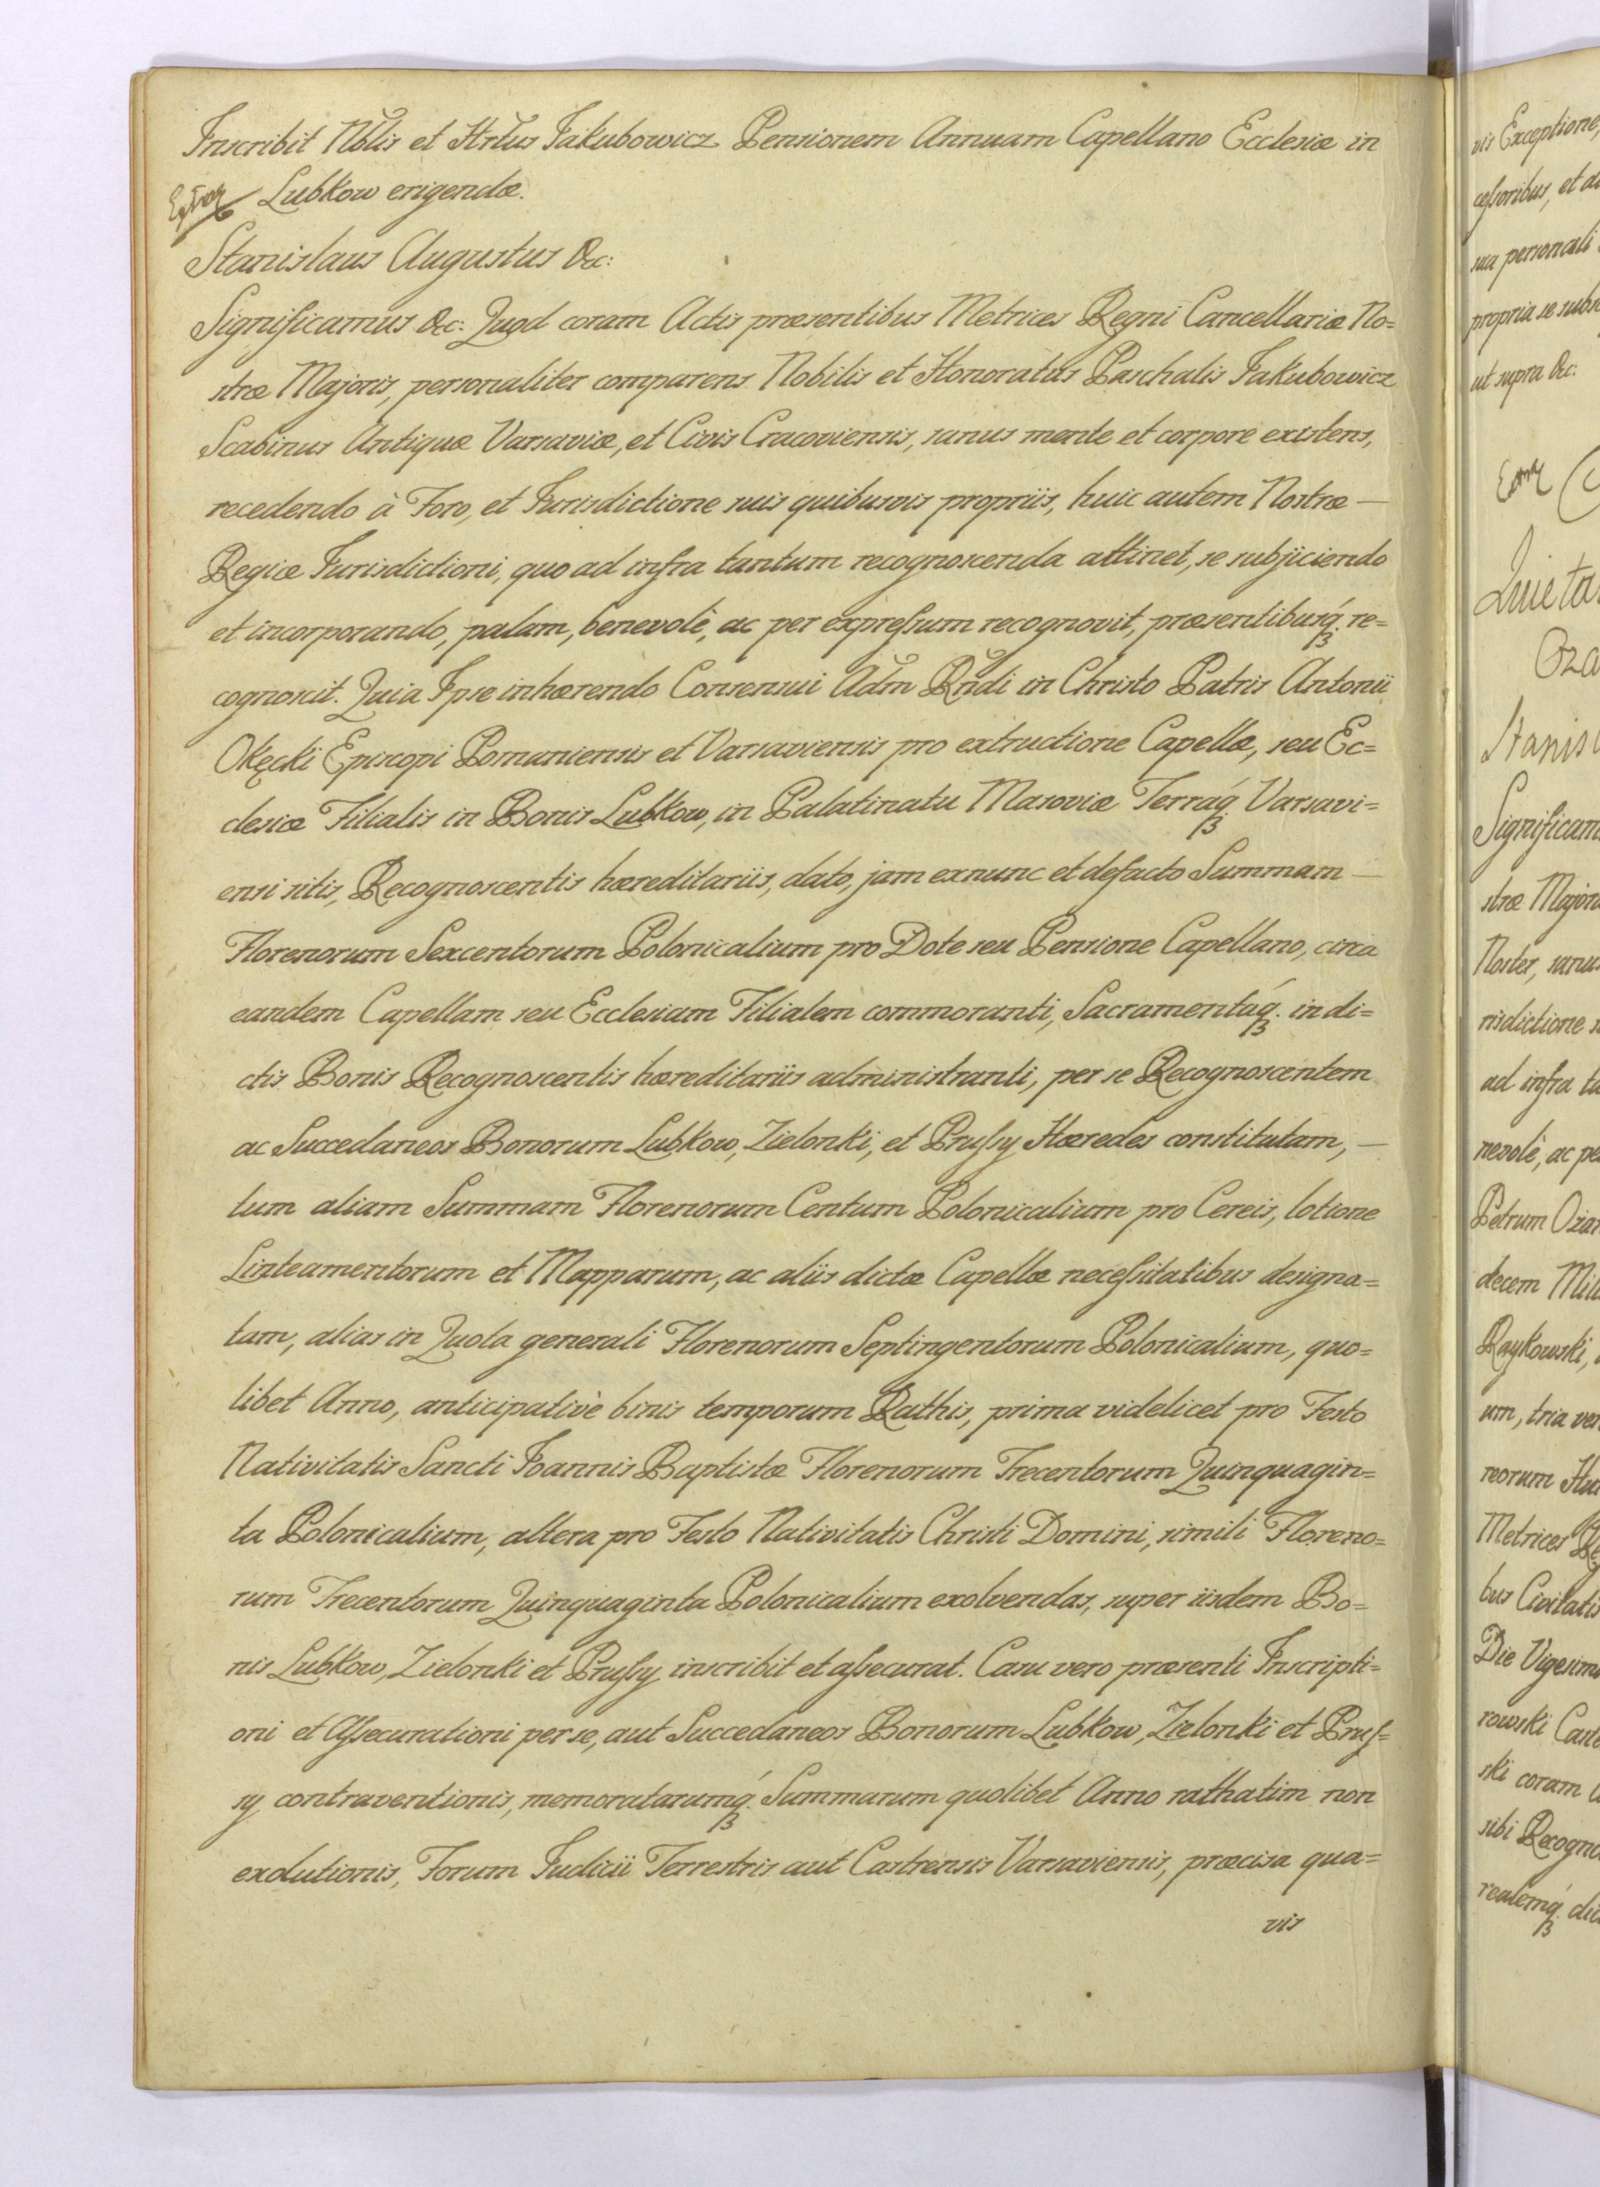 Inscribit Nblis et Hrtus Jakubowicz Pensionem Annuam Capellano Ecclesiæ in
Lubkow erigendæ.
Stanislaus Augustus &c:
Significamus &c: Quod coram Actis præsentibus Metrices Regni Cancellariæ No=
stræ Majoris, personaliter comparens Nobilis et Honoratus Paschalis Jakubowicz
Scabinus Antiquæ Varsaviæ, et Civis Cracoviensis, sanus mente et corpore existens,
recedendo à Foro, et Jurisdictione suis quibusvis propriis, huic autem Nostræ —
Regiæ Jurisdictioni, quo ad infra tantum recognoscenda attinet, se subjiciendo
et incorporando, palam, benevolè, ac per expressum recognovit, præsentibusq́. re=
cognoscit. Quia Ipse inhærendo Consensui Adm Rndi in Christo Patris Antonii
Okęcki Episcopi Posnaniensis et Varsaviensis pro extructione Capellæ, seu Ec=
clesiæ Filialis in Bonis Lubkow, in Palatinatu Masoviæ Terráq. Varsavi=
ensi sitis, Recognoscentis hæreditariis, dato, jam exnunc et defacto Summam —
Florenorum Sexcentorum Polonicalium pro Dote seu Pensione Capellano, circa
eandem Capellam seu Ecclesiam Filialem commoranti, Sacramentáq. in di=
ctis Bonis Recognoscentis hæreditariis administranti, per se Recognoscentem
ac Succedaneos Bonorum Lubkow, Zielonki, et Prussy Hæredes constitutam, —
tum aliam Summam Florenorum Centum Polonicalium pro Cereis, lotione
Linteamentorum et Mapparum, ac aliis dictæ Capellæ necessitatibus designa=
tam, alias in Quota generali Florenorum Septingentorum Polonicalium, quo=
libet Anno, anticipativè binis temporum Rathis, prima videlicet pro Festo
Nativitatis Sancti Joannis Baptistæ Florenorum Trecentorum Quinquagin=
ta Polonicalium, altera pro Festo Nativitatis Christi Domini, simili Floreno=
rum Trecentorum Quinquaginta Polonicalium exolvendas, super iisdem Bo=
nis Lubkow, Zielonki et Prussy inscribit et assecurat. Casu vero præsenti Inscripti=
oni et Assecurationi per se, aut Succedaneos Bonorum Lubkow, Zielonki et Prus=
sy contraventionis, memoratarumq́. Summarum quolibet Anno rathatim non
exolutionis, Forum Judicii Terrestris aut Castrensis Varsaviensis, præcisa qua=
vis
vis Exceptione,
cessoribus, et
sua personali
propria se
ut supra &c:
Stanis
Significam
stræ Major
Noster, sanus
risdictione
ad infra
nevolè, ac pe
Petrum
decem
Raykowski,
um, tria
reorum
Metrices
bus Civitatis
Die Vigesima
rowski
ski coram
sibi Recogno
realemq́.